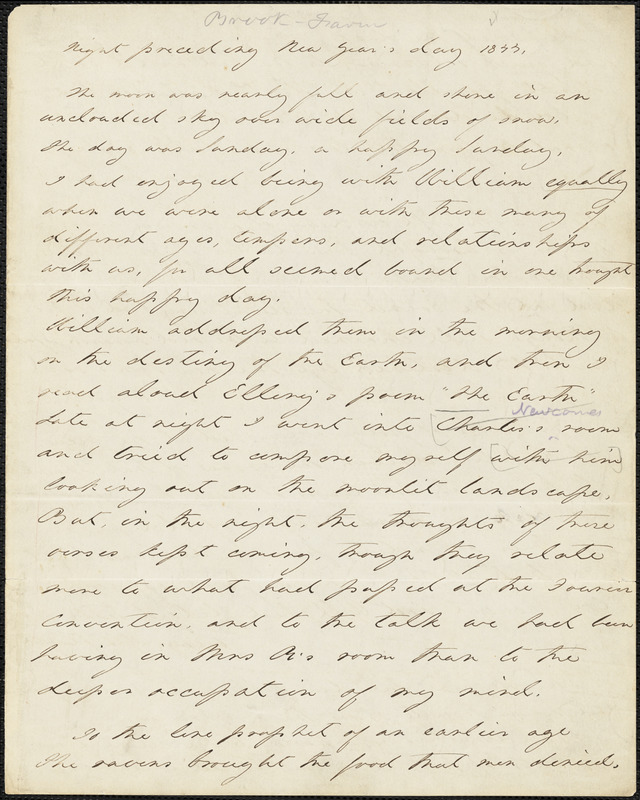 Brook-Farm
Night preceding New Year's day 1844.
The moon was nearly full and shone in an
unclouded sky over wide fields of snow.
The day was Sunday, a happy Sunday.
I had enjoyed being with William equally
when we were alone or with these many of
different ages, tempers, and relationships
with us, for all seemed bound in one thought
this happy day.
William addressed them in the morning
on the destiny of the Earth, and then I
read aloud Ellery's poem "The Earth"
Newcomb
Late at night I went into [Charles's room
and tried to compose myself [with him]
looking out on the moonlit landscape.
But, in the night, the thoughts of these
verses kept coming, though they relate
more to what had passed at the Fourier
Convention, and to the talk we had been
having in Mrs R's room than to the
deeper occupation of my mind.
To the lone prophet of an earlier age
The ravens brought the food that men denied,